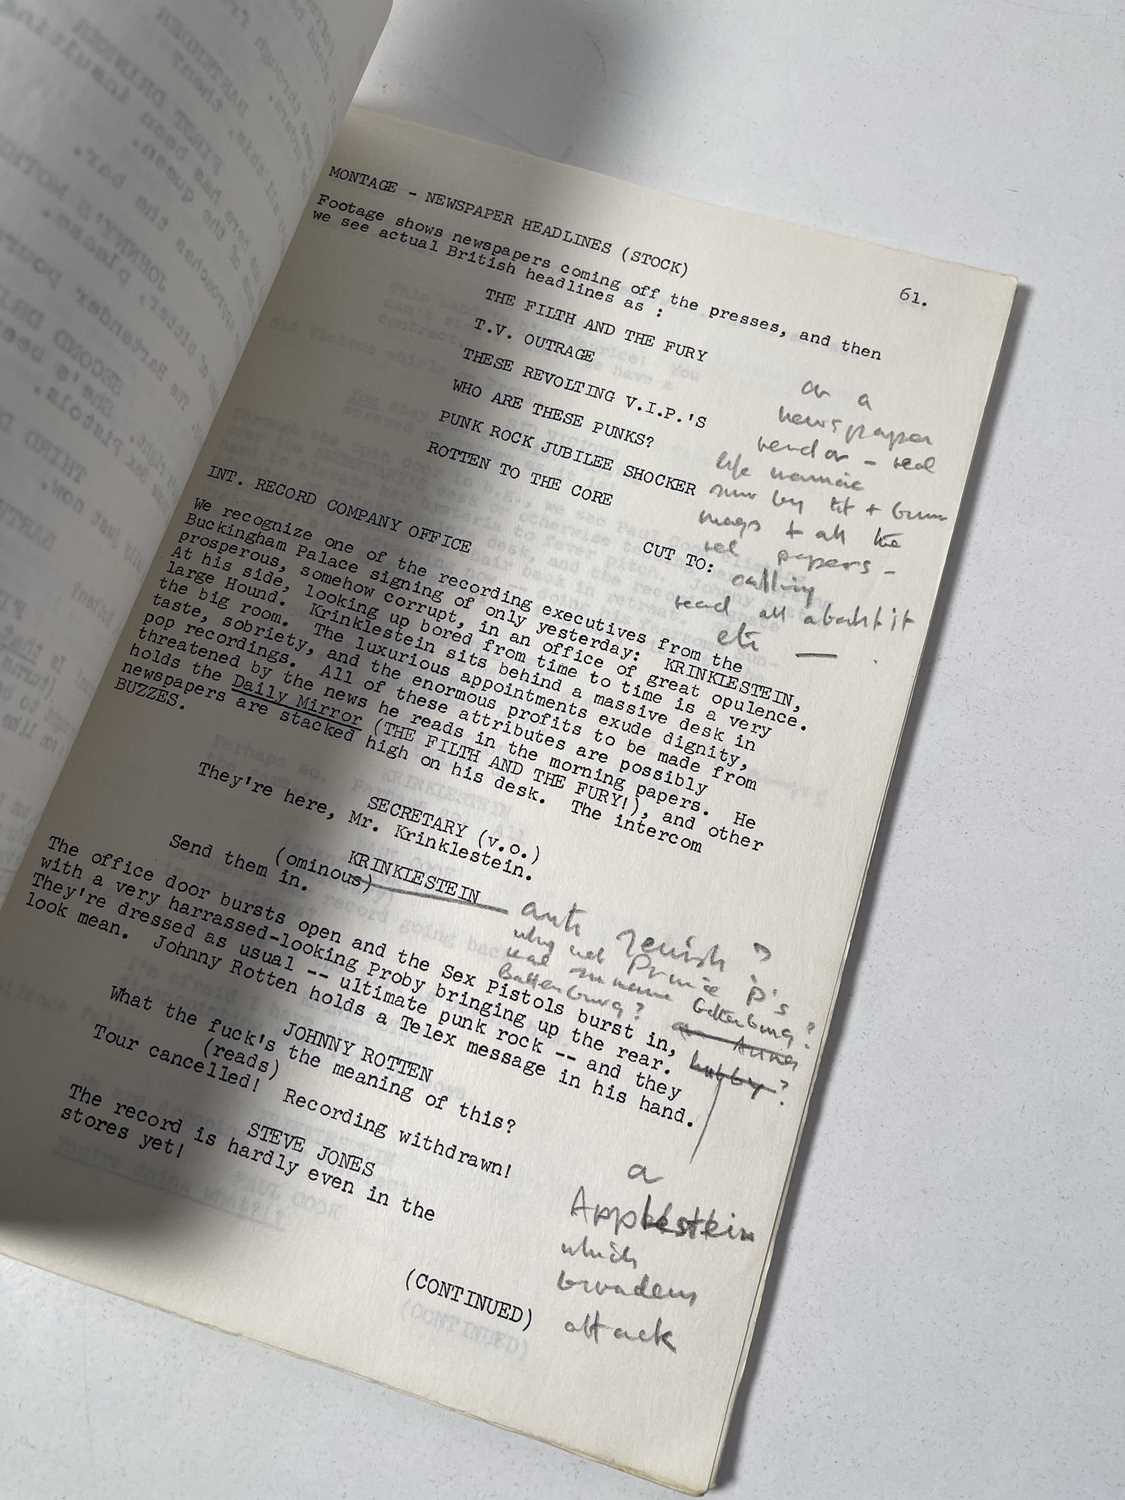 61.
MONTAGE - NEWSPAPER HEADLINES (STOCK)
Footage shows newspapers coming off the presses, and then
we see actual British headlines as :
THE FILTH AND THE FURY
T.V. OUTRAGE
THESE REVOLTING V.I.P.'S
WHO ARE THESE PUNKS?
PUNK ROCK JUBILEE SHOCKER
ROTTEN TO THE CORE
or a
newspaper
vendor - real
life maniac
surr by tit + bum
mags + all the
papers -
calling
read all about it
etc —
CUT TO:
INT. RECORD COMPANY OFFICE
We recognize one of the recording executives from the
Buckingham Palace signing of only yesterday: KRINKLESTEIN,
prosperous, somehow corrupt, in an office of great opulence.
At his side, looking up bored from time to time is a very
large Hound. Krinklestein sits behind a massive desk in
the big room. The luxurious appointments exude dignity,
taste, sobriety, and the enormous profits to be made from
pop recordings. All of these attributes are possibly
threatened by the news he reads in the morning papers. He
holds the Daily Mirror (THE FILTH AND THE FURY!), and other
newspapers are stacked high on his desk. The intercom
BUZZES.
SECRETARY (v.o.)
They're here, Mr. Krinklestein.
KRINKLESTEIN
(ominous)
Send them in.
anti Jewish?
why not Prince P's
real surname Gottenburg?
Battenburg?
hubby?
The office door bursts open and the Sex Pistols burst in,
with a very harrassed-looking Proby bringing up the rear.
They're dressed as usual -- ultimate punk rock -- and they
look mean. Johnny Rotten holds a Telex message in his hand.
JOHNNY ROTTEN
What the fuck's the meaning of this?
(reads)
Tour cancelled! Recording withdrawn!
STEVE JONES
The record is hardly even in the
stores yet!
a
Applestein
which
broadens
attack
(CONTINUED)